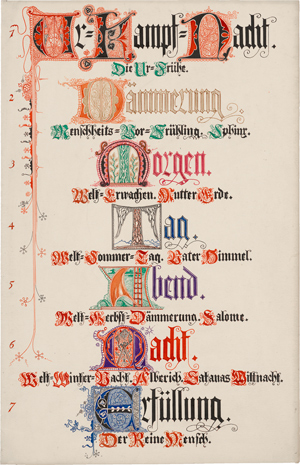 1 Ur-Kampf-Nacht.
Die Ur-Frühe.
2 Dämmerung
Menschheits-Vor-Frühling.
3 Morgen.
Welt-Erwachen. Mutter Erde.
4 Tag.
Welt-Sommer-Tag. Vater Himmel.
5 Abend.
Welt-Herbst-Dämmerung. Salome.
6 Nacht.
Welt-Winter-Nacht. Alberich. Satanas
7 Erfüllung.
Der Reine Mensch.